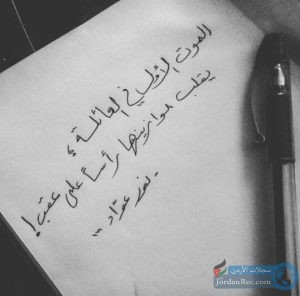 الموت الأول في العائلة ؟
يقلب موازينها رأساً على عقب !
- نور عوّاد ...
سجلات الأردن
JordanRec.com